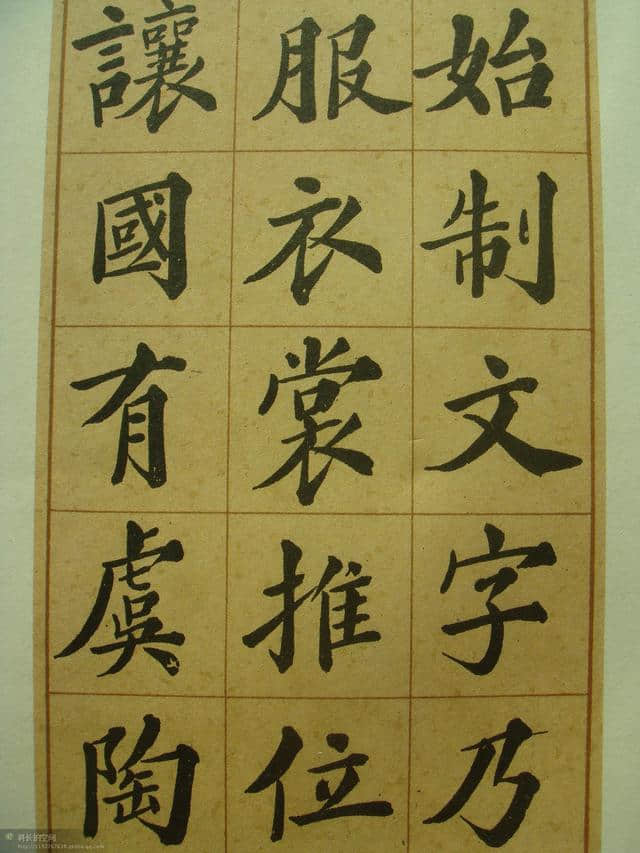 始制文字乃
服衣裳推位
讓國有虞陶